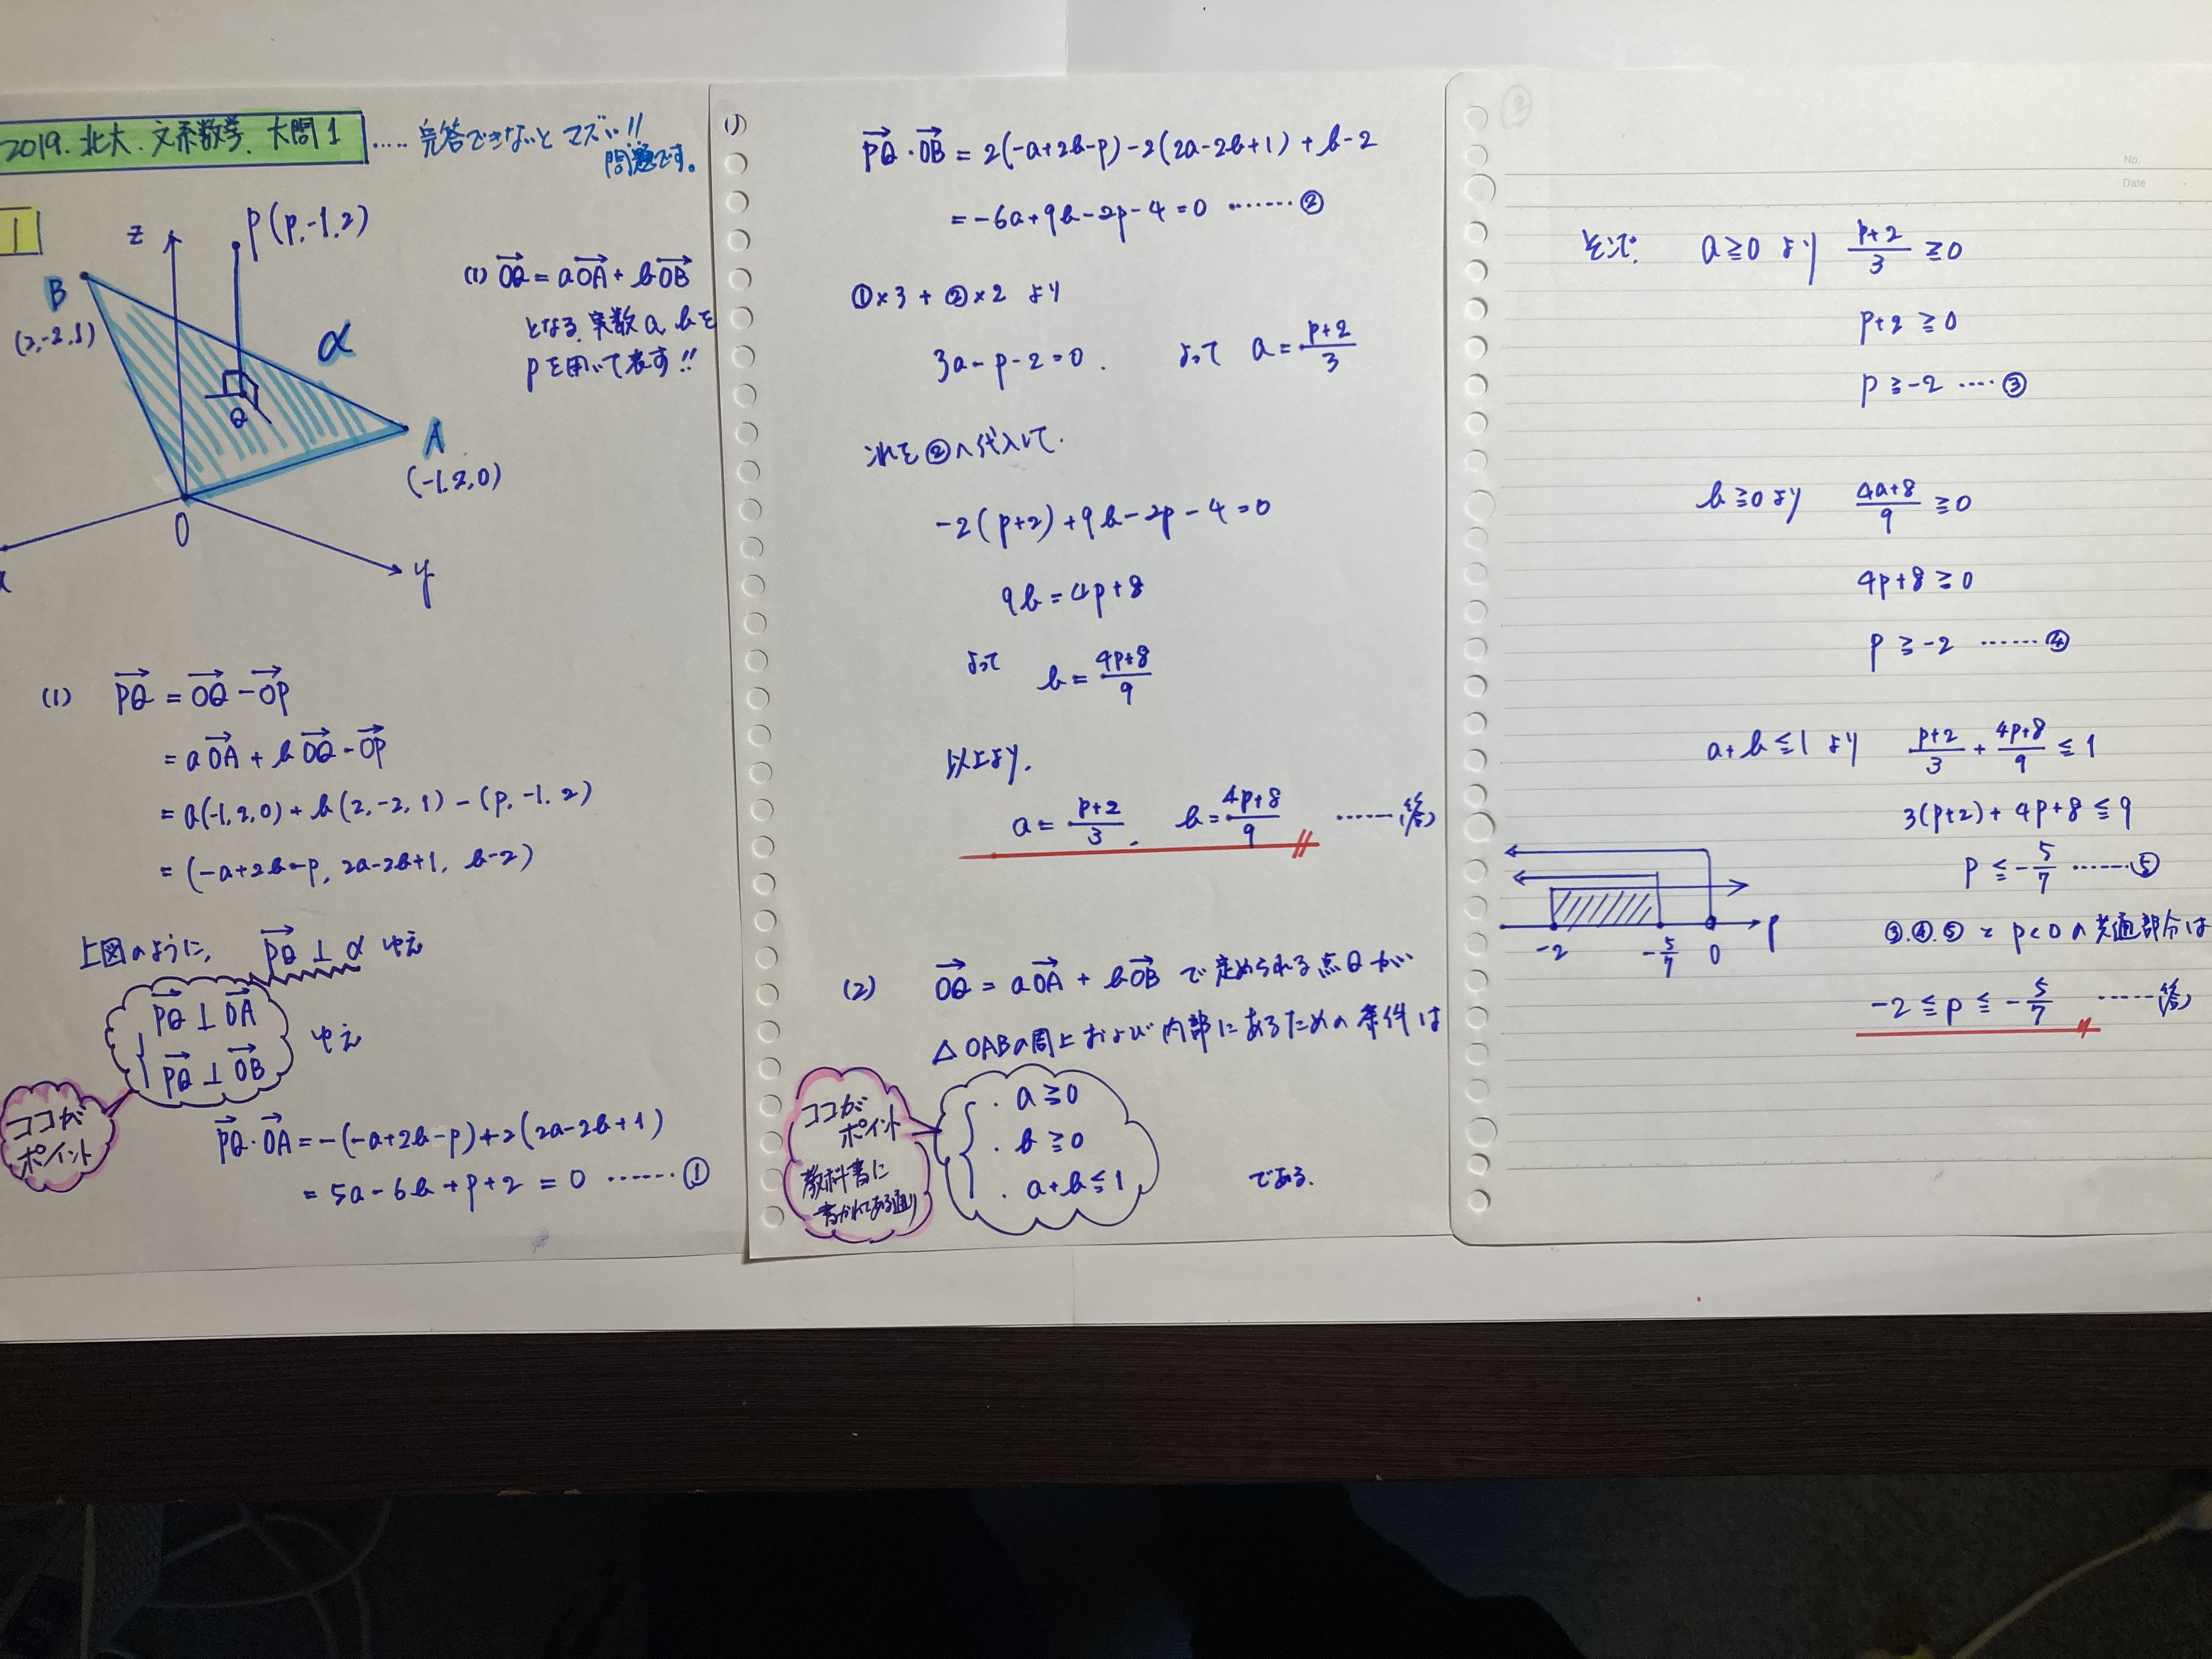 2019. 北大. 文系数学. 大問1 ..... 完答できないと マズい!!
問題です。
1
z
P(p,-1,2)
B
(2,-2,1)
α
Q
A
(-1,2,0)
O
x
y
(1) OQ = aOA + bOB
となる. 実数 a, bを
pを用いて表す!!
(1) PQ = OQ - OP
= aOA + bOQ - OP
= a(-1,2,0) + b(2,-2,1) - (p,-1,2)
= (-a+2b-p, 2a-2b+1, b-2)
上図のように, PQ ⊥ α ゆえ
PQ ⊥ OA
PQ ⊥ OB
ゆえ
ココが
ポイント
PQ・OA = -(-a+2b-p)+2(2a-2b+1)
= 5a-6b+p+2 = 0 ……①
PQ・OB = 2(-a+2b-p)-2(2a-2b+1)+b-2
= -6a+9b-2p-4=0 ……②
①×3 + ②×2 より
3a-p-2=0. よって a = p+2/3
これを②へ代入して.
-2(p+2)+9b-2p-4=0
9b=4p+8
よって b = 4p+8/9
以上より.
a = p+2/3, b = 4p+8/9 ……(答)
(2) OQ = aOA + bOB で定められる点Qが
△OABの周上および内部にあるための条件は
ココが
ポイント
教科書に
書かれてある通り
・a≧0
・b≧0
・a+b≦1
である.
②
No.
Date
そこで. a≧0 より p+2/3 ≧0
p+2≧0
p≧-2 ……③
b≧0より 4a+8/9 ≧0
4p+8≧0
p≧-2 ……④
a+b≦1 より p+2/3 + 4p+8/9 ≦ 1
3(p+2)+4p+8≦9
p≦-5/7 ……⑤
-2 -5/7 0 p
③.④.⑤ と p<0 の共通部分は
-2≦p≦-5/7 ……(答)